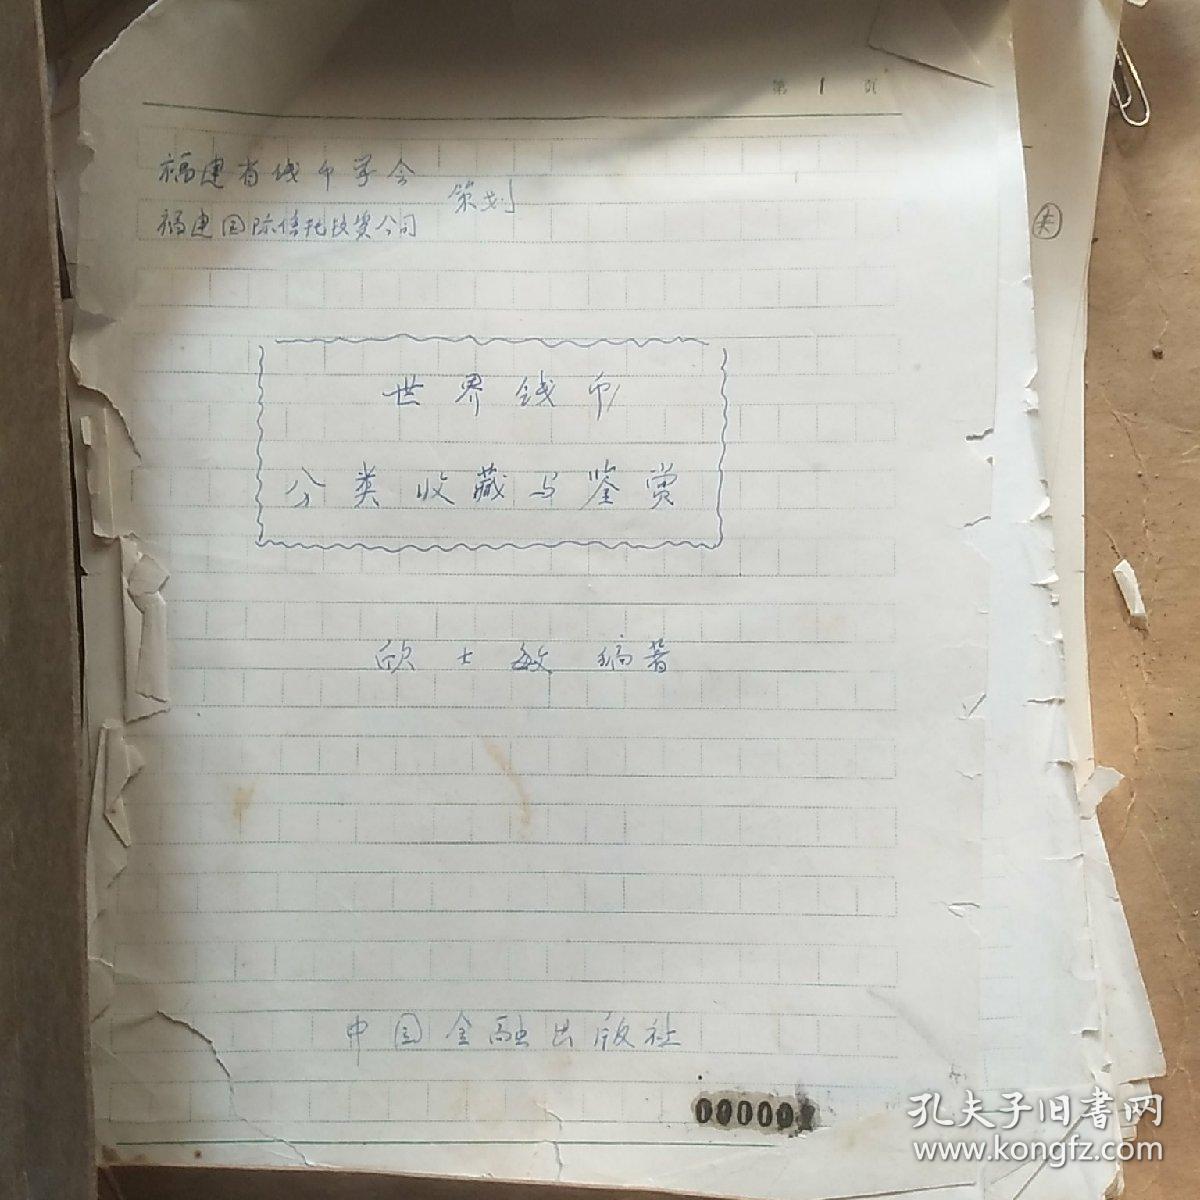 第 1 页
福建省钱币学会
策划
福建国际信托投资公司
世界钱币
分类收藏与鉴赏
欣士敏 编著
中国金融出版社
孔夫子旧书网
www.kongfz.com